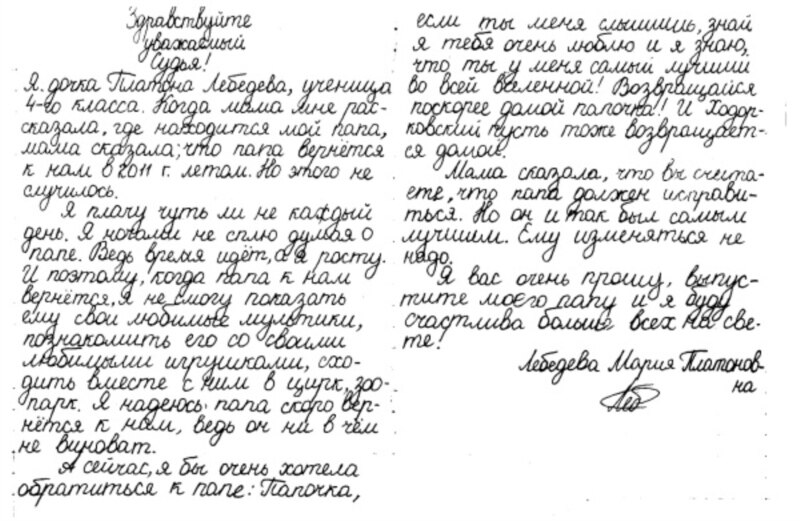 Здравствуйте
уважаемый
Судья!
Я дочка Платона Лебедева, ученица
4-го класса. Когда мама мне рас-
сказала, где находится мой папа,
мама сказала, что папа вернётся
к нам в 2011 г. летом. Но этого не
случилось.
Я плачу чуть ли не каждый
день. Я ночами не сплю думая о
папе. Ведь время идёт, а я росту.
И поэтому, когда папа к нам
вернётся, я не смогу показать
ему свои любимые мультики,
познакомить его со своими
любимыми игрушками, схо-
дить вместе с ним в цирк, зоо-
парк. Я надеюсь папа скоро вер-
нётся к нам, ведь он ни в чём
не виноват.
А сейчас, я бы очень хотела
обратиться к папе: Папочка,
если ты меня слышишь, знай
я тебя очень люблю и я знаю,
что ты у меня самый лучший
во всей вселенной! Возвращайся
поскорее домой папочка!! И Ходор-
ковский пусть тоже возвращает-
ся домой.
Мама сказала, что вы счита-
ете, что папа должен исправи-
ться. Но он и так был самым
лучшим. Ему изменяться не
надо.
Я вас очень прошу, выпус-
тите моего папу и я буду
счастлива больше всех на све-
те!
Лебедева Мария Платонов-
на
Леб